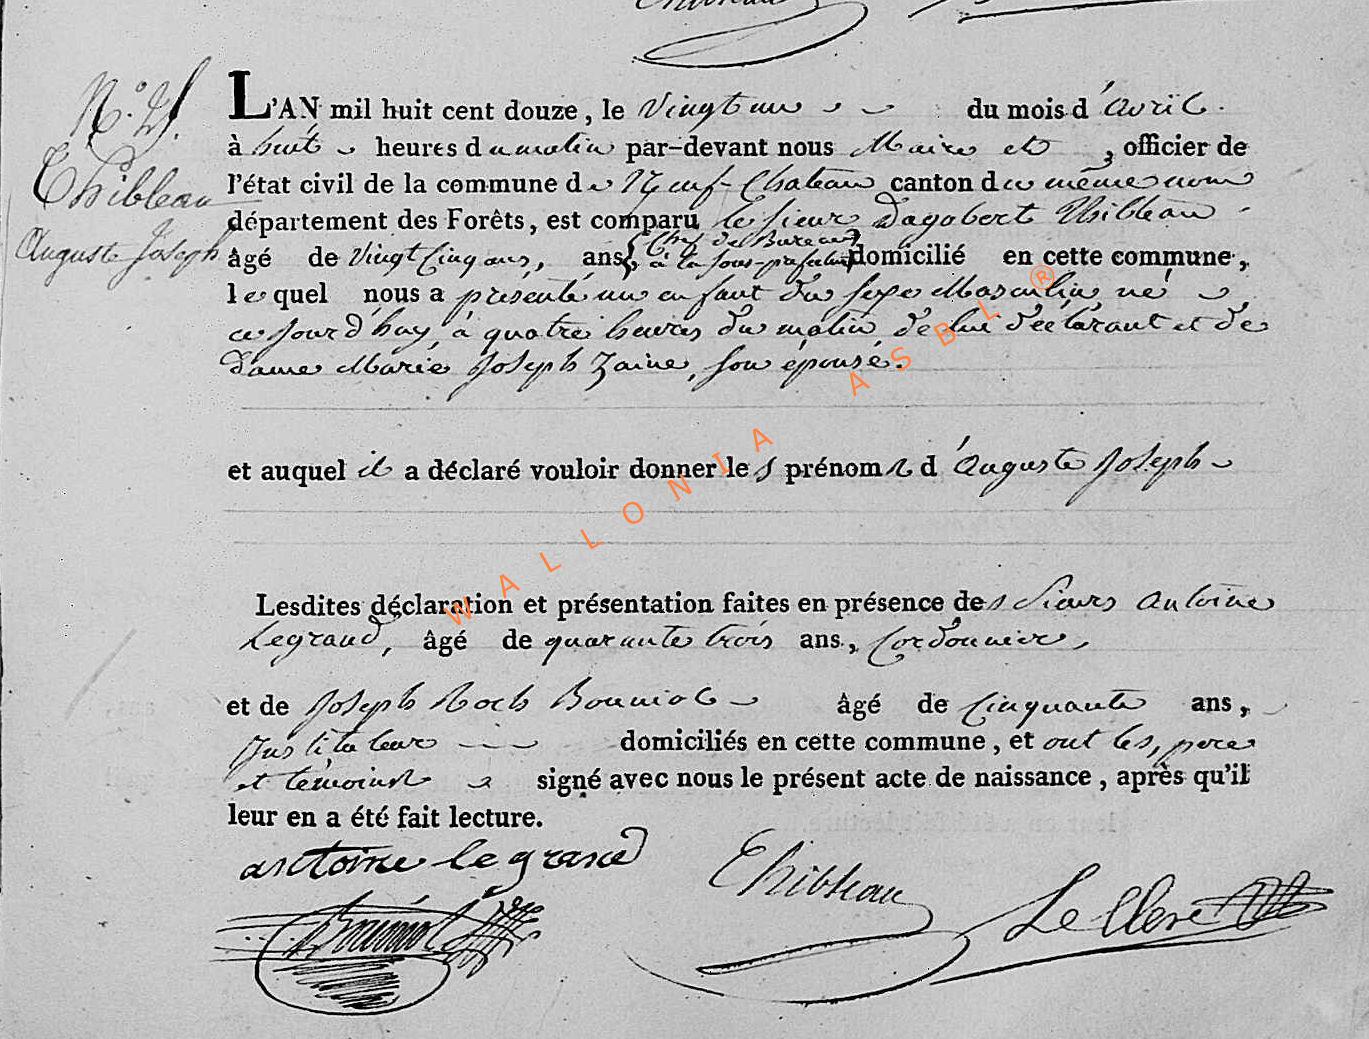 Thibleau
Auguste Joseph
L'AN mil huit cent douze, le Vingt un du mois d'avril
à huit heures du matin par-devant nous Maire et, officier de
l'état civil de la commune de Neuf-Chateau canton du même nom
département des Forêts, est comparu le sieur Dagobert Thibleau
âgé de Vingt Cinq ans, ans, Chef de Bureau à la sous-prefecture domicilié en cette commune,
lequel nous a presenté un enfant du sexe Masculin, né
ce jourd'huy, à quatre heures du matin de lui déclarant et de
dame Marie Joseph Zaine, son épouse.
et auquel il a déclaré vouloir donner les prénoms d'auguste Joseph
Lesdites déclaration et présentation faites en présence des Sieurs antoine
Legrand, âgé de quarante trois ans, Cordonnier,
et de Joseph Roch Bouniol âgé de Cinquante ans,
Instituteur domiciliés en cette commune, et ont les, pere
et temoins signé avec nous le présent acte de naissance, après qu'il
leur en a été fait lecture.
antoine le grand
Thibleau
Le Clerc
Bouniol
WALLONIA ASBL ®